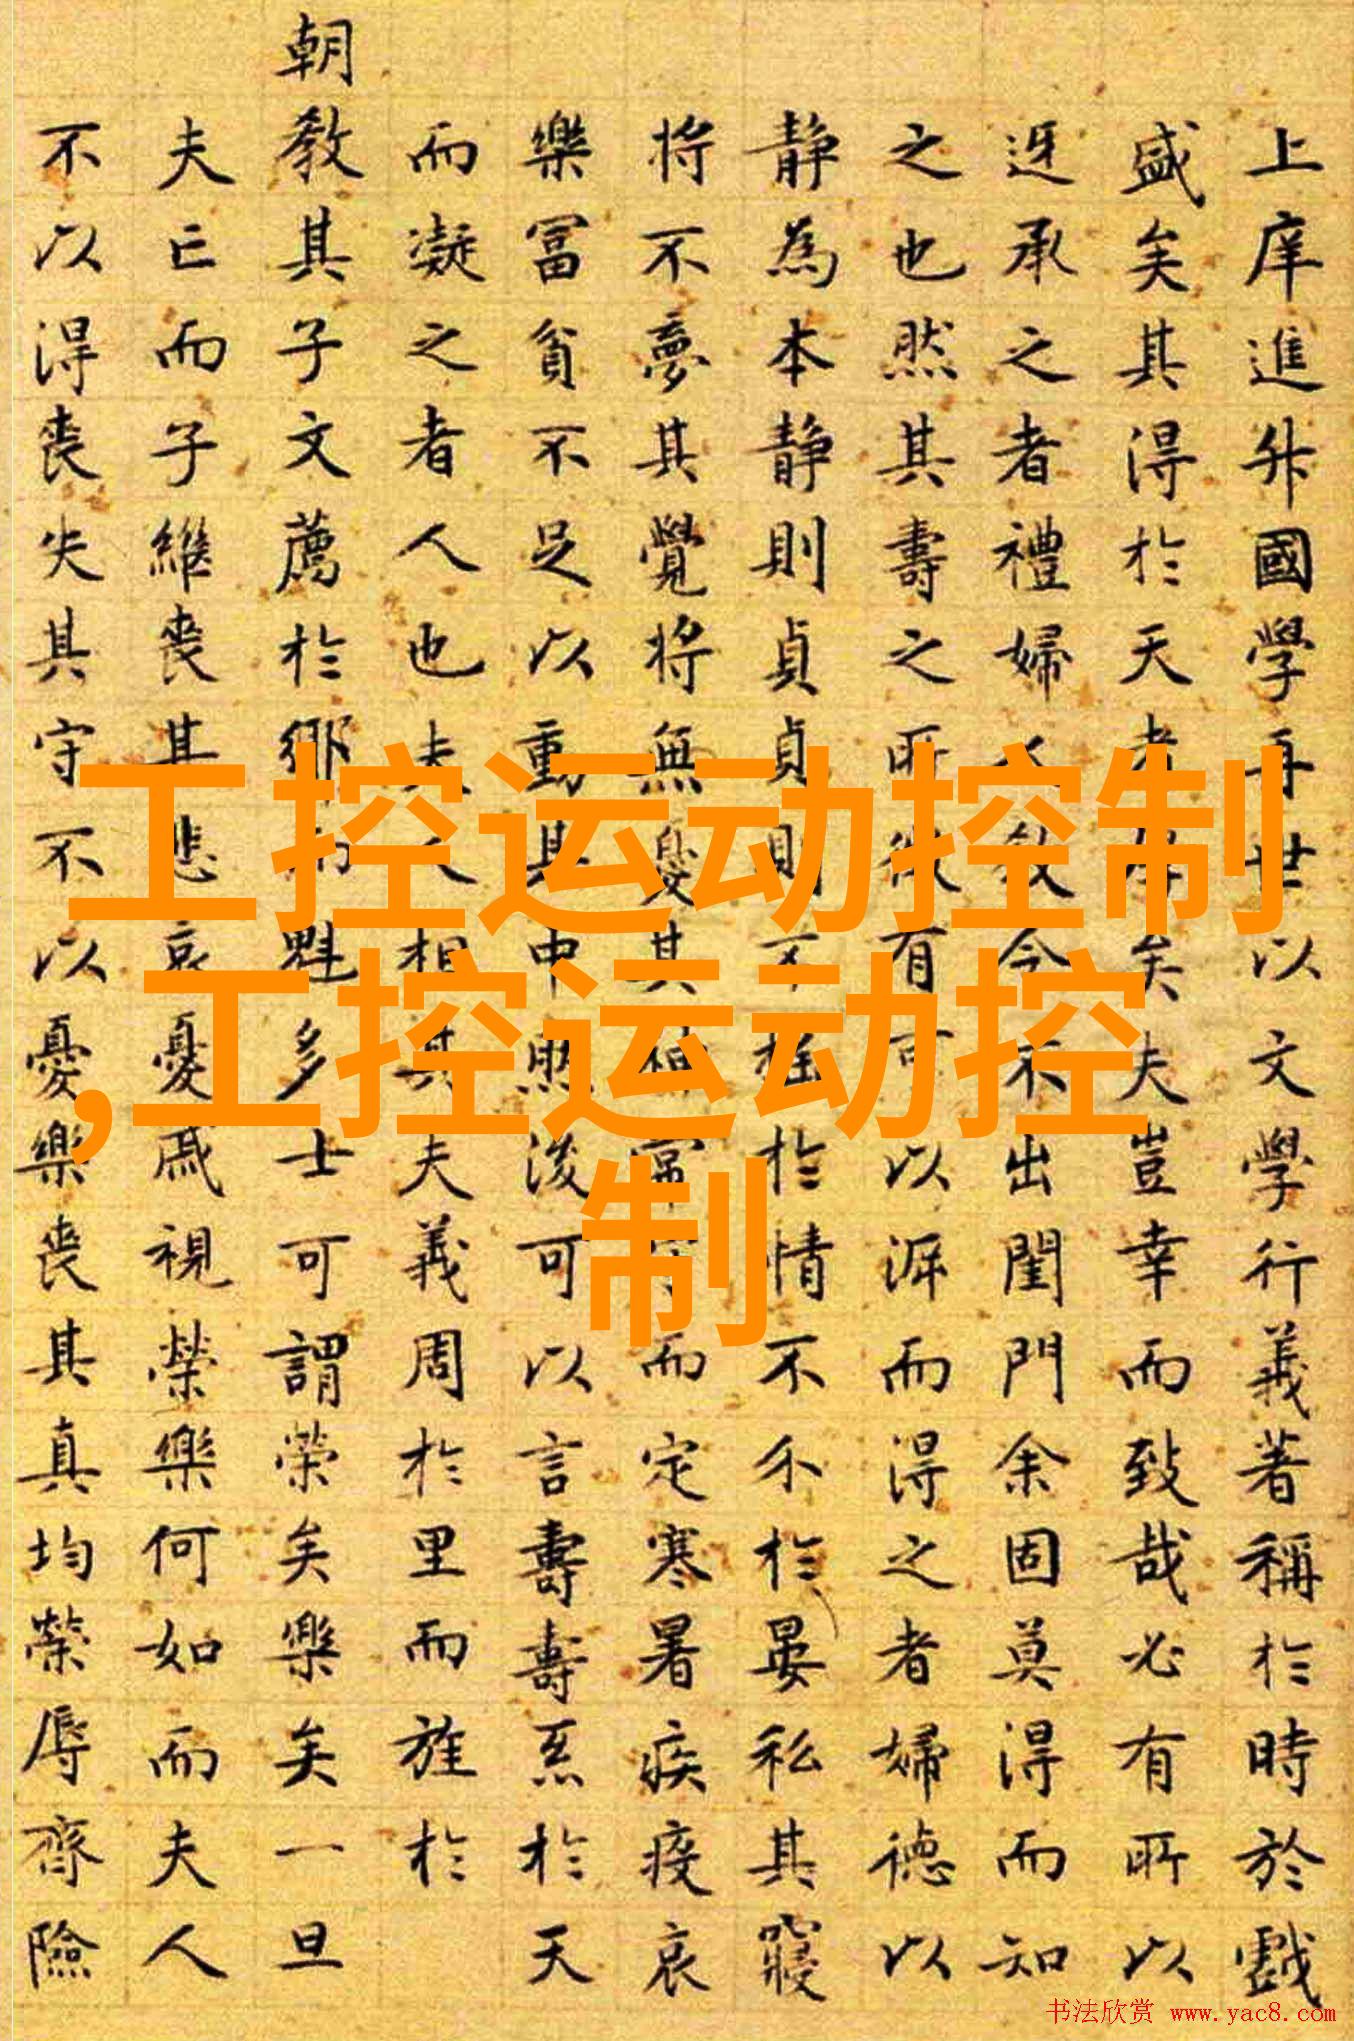 上庠進升國學再世以文學行義著稱於時於戲
盛矣其得於天者厚矣夫豈幸而致哉必有所以
迓承之者禮婦人教令不出閨門余固莫得而知
之也然其壽之所徵有可以泝而得之者婦德以
静為本静則貞貞則不搖於情不尒於晏私其寢
將不夢其覺將無憂其神常而定寒暑疾疫哀
樂富貧不足以動其中然後可以言壽壽系於天
而凝之者人也夫人相其夫義周於里而旌於
朝教其子文薦於鄉而魁多士可謂榮矣樂矣一旦
夫亡而子繼喪其悲哀憂戚視榮樂何如而夫人
不以得喪失其守不以憂樂喪其真均榮辱齊險
工控运动控制
,工控运动控
制
书法欣赏 www.yac8.com